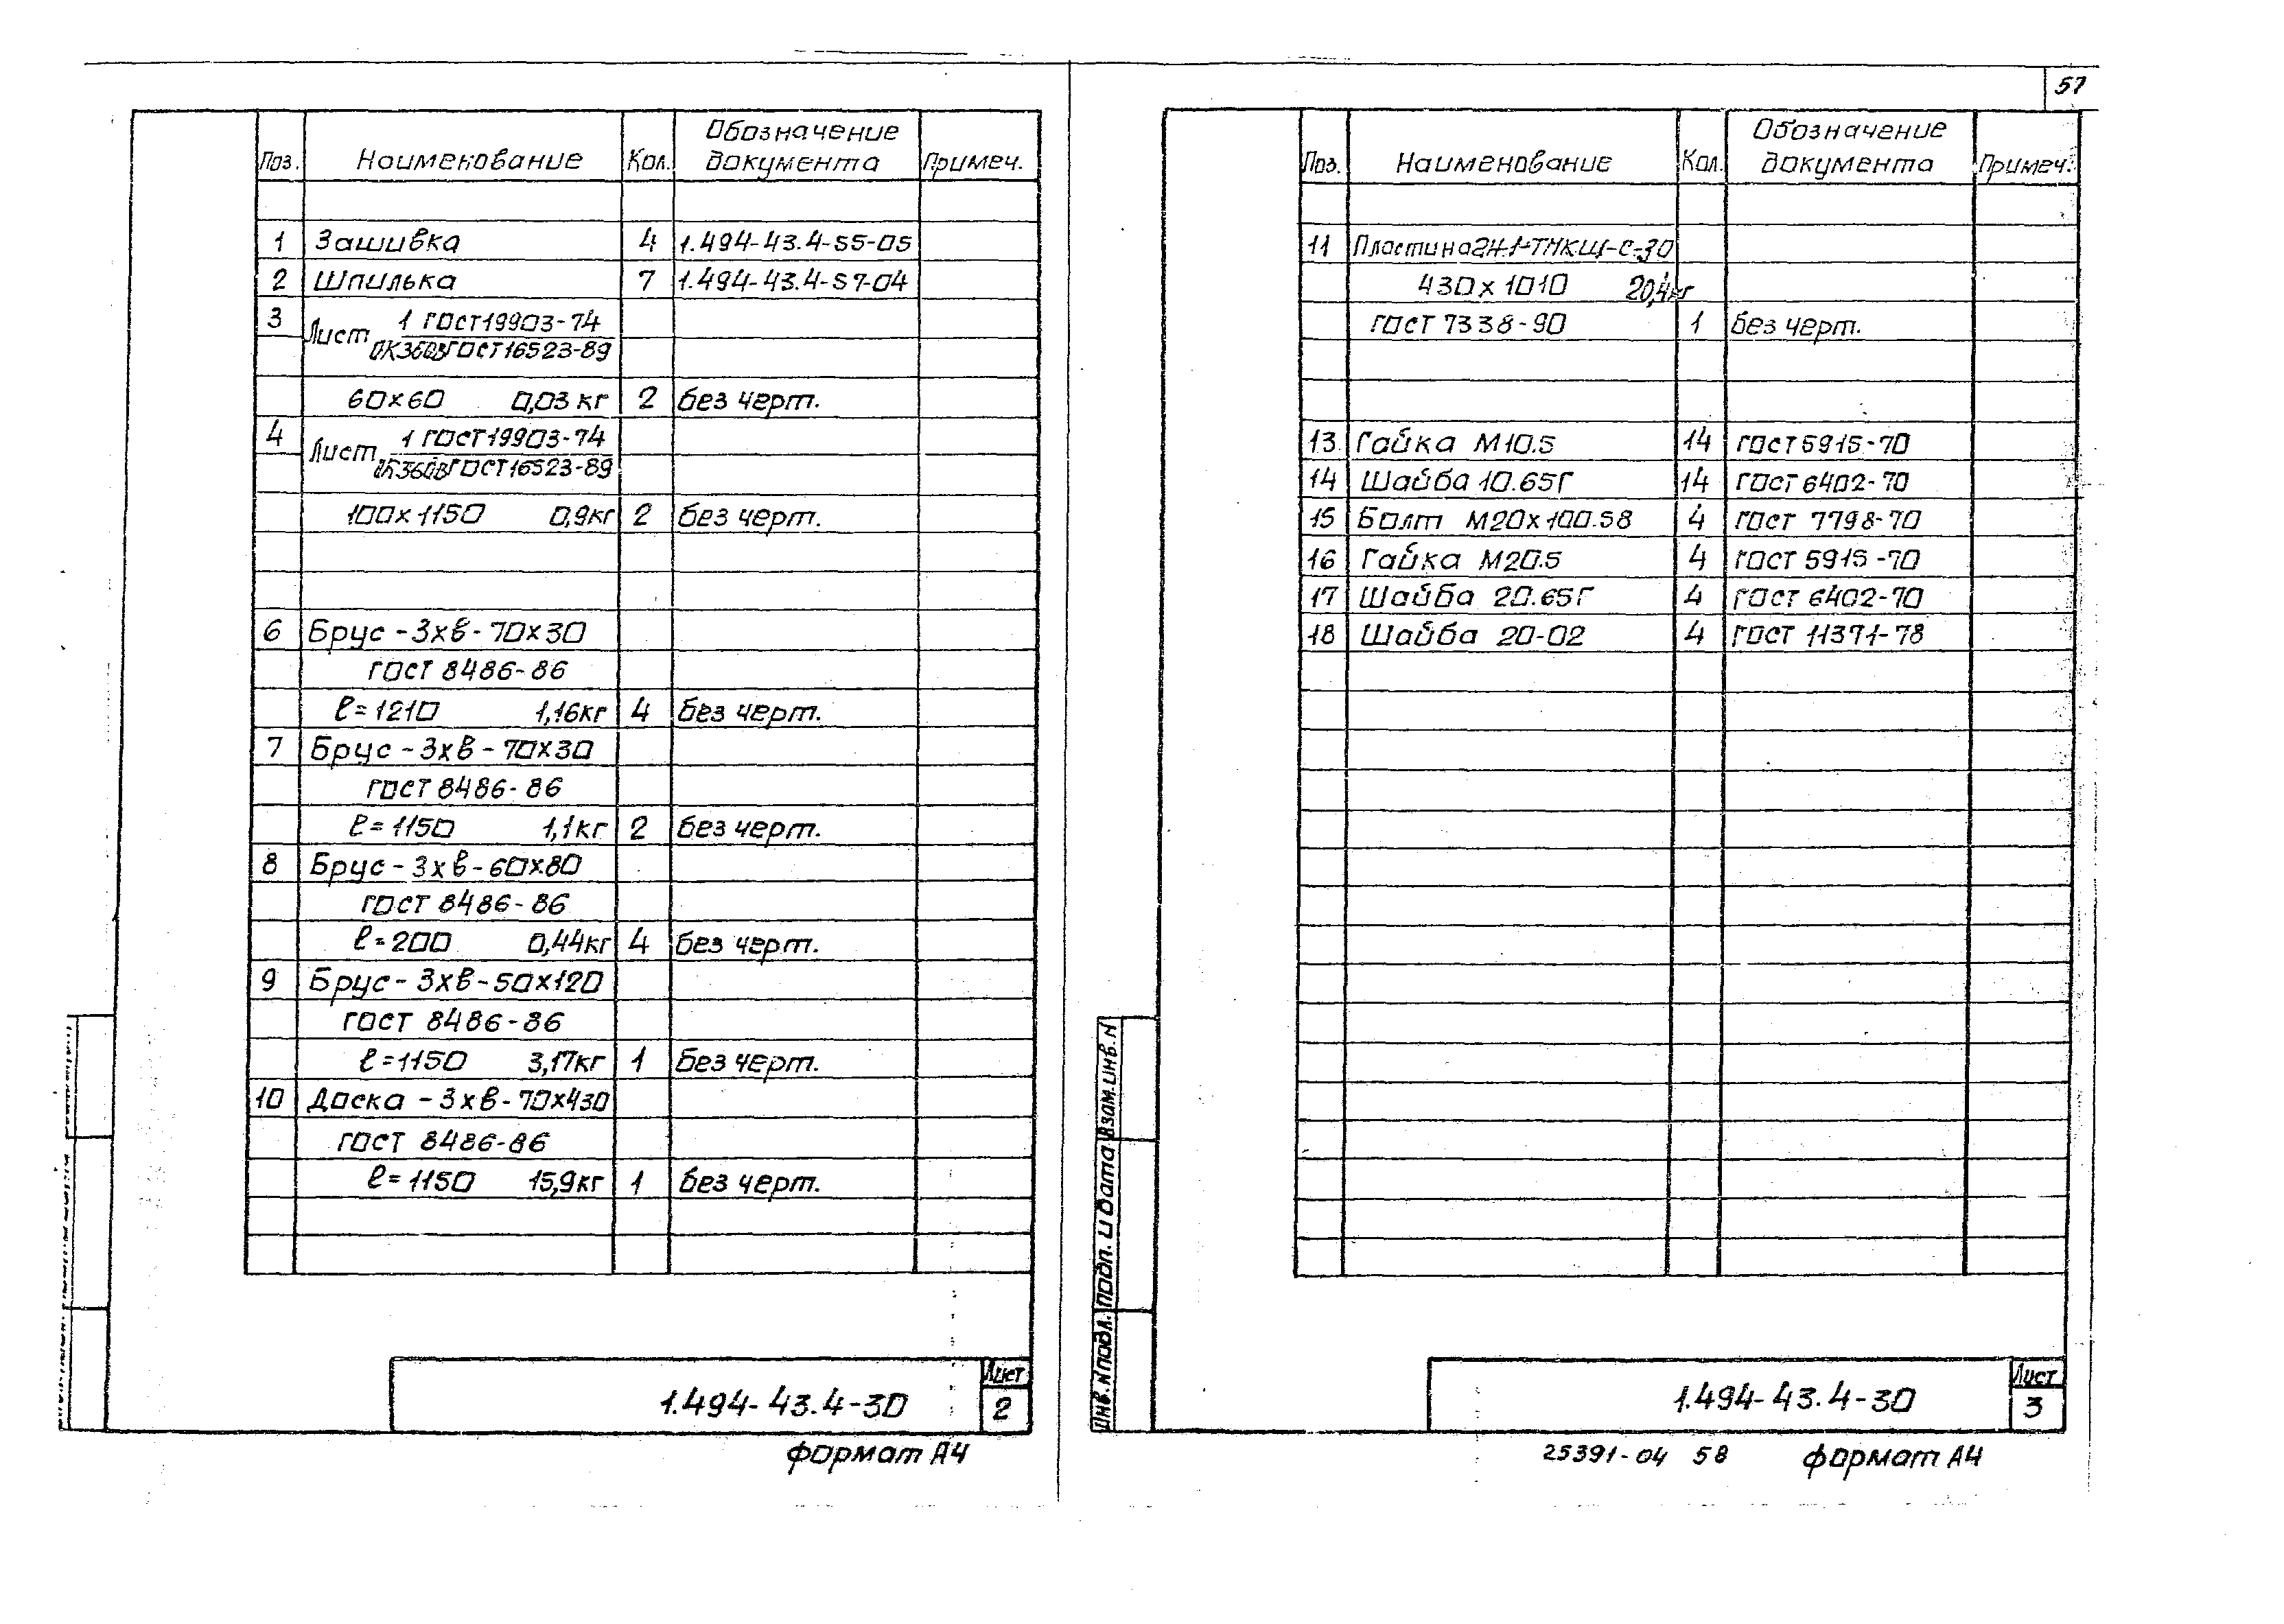 57
Поз. Наименование Кол. Обозначение документа Примеч.
1 Зашивка 4 1.494-43.4-55-05
2 Шпилька 7 1.494-43.4-57-04
3 Лист 1 ГОСТ 19903-74
ОК360В ГОСТ 16523-89
60х60 0,03кг 2 без черт.
4 Лист 1 ГОСТ 19903-74
ОК360В ГОСТ 16523-89
100х1150 0,9кг 2 без черт.
6 Брус-3хв-70х30
ГОСТ 8486-86
ℓ=1210 1,16кг 4 без черт.
7 Брус-3хв-70х30
ГОСТ 8486-86
ℓ=1150 1,1кг 2 без черт.
8 Брус-3хв-60х80
ГОСТ 8486-86
ℓ=200 0,44кг 4 без черт.
9 Брус-3хв-50х120
ГОСТ 8486-86
ℓ=1150 3,17кг 1 без черт.
10 Доска-3хв-70х430
ГОСТ 8486-86
ℓ=1150 15,9кг 1 без черт.
1.494-43.4-30
Лист
2
формат А4
Поз. Наименование Кол. Обозначение документа Примеч.
11 Пластина 2Н-I-ТМКЩ-С-30
430х1010 20,4кг
ГОСТ 7338-90 1 без черт.
13 Гайка М10.5 14 ГОСТ 5915-70
14 Шайба 10.65Г 14 ГОСТ 6402-70
15 Болт М20х100.58 4 ГОСТ 7798-70
16 Гайка М20.5 4 ГОСТ 5915-70
17 Шайба 20.65Г 4 ГОСТ 6402-70
18 Шайба 20-02 4 ГОСТ 11371-78
Инв.Nподл. Подп. и дата Взам.инв.N
1.494-43.4-30
Лист
3
25391-04 58 формат А4